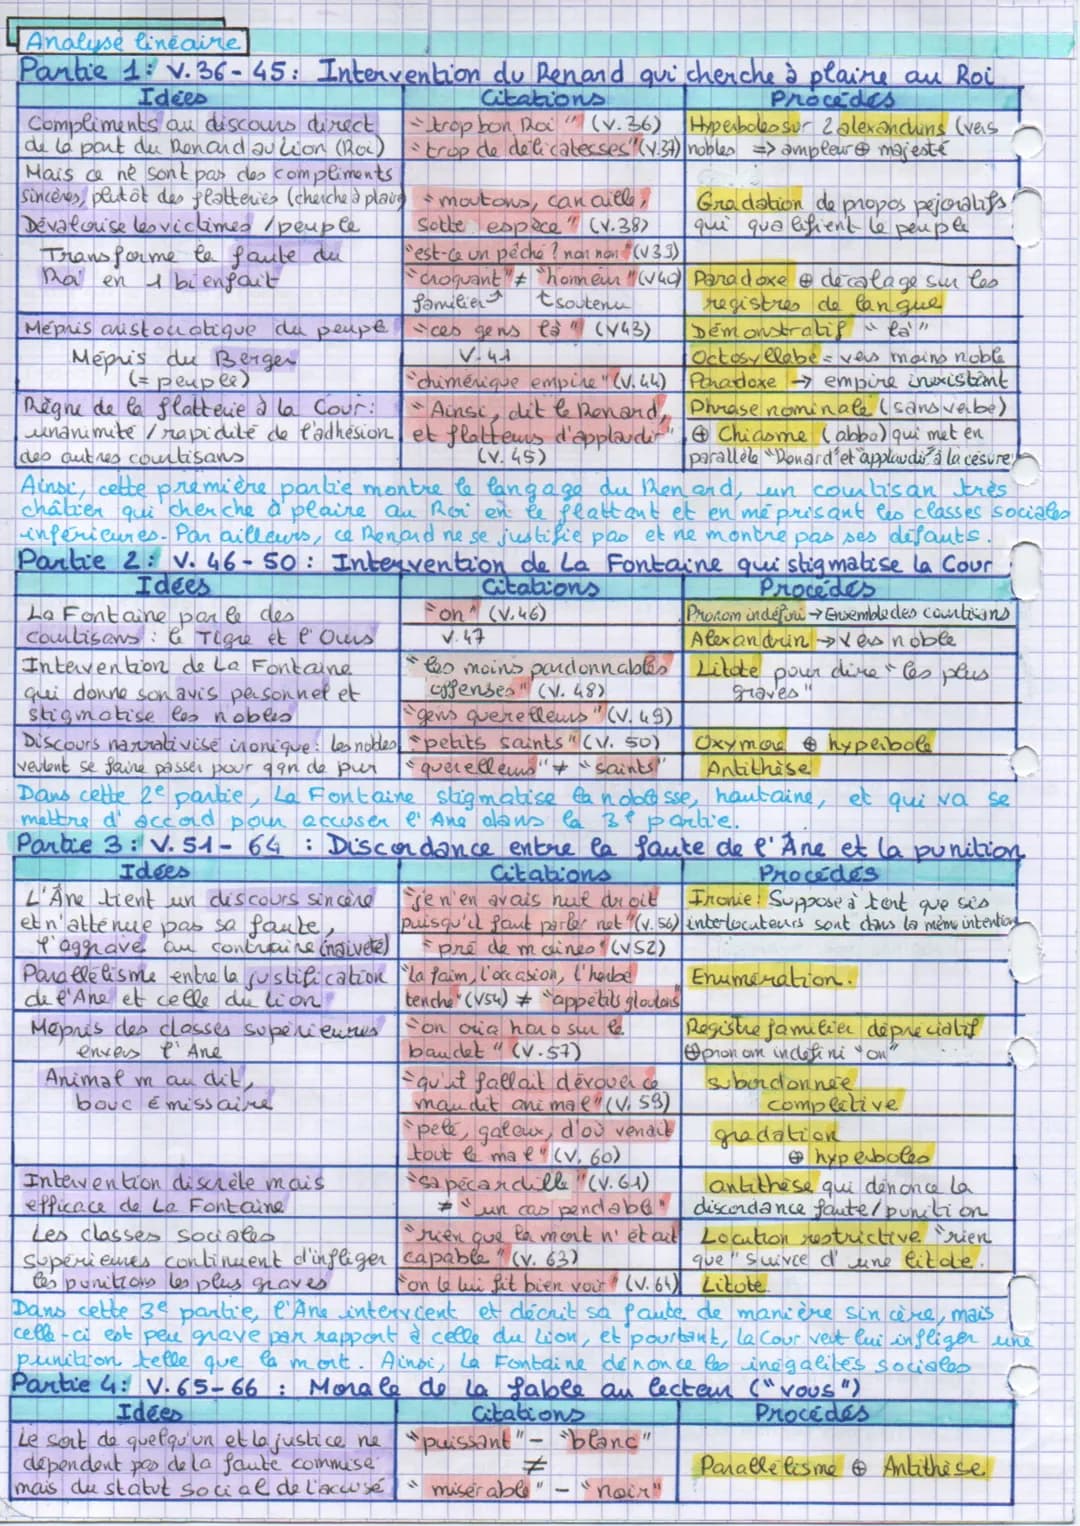 Analyse linéaire
Partie 1: v.36-45: Intervention du Renard qui cherche à plaire au Roi
Idées
Citations
Procédés
Compliments au discours direct
de la part du Renard au Lion (Roi)
"trop bon Roi" (v.36)
"trop de délicatesses" (v.37)
Hyperboles sur 2 alexandrins (vers
nobles => ampleur ⊕ majesté
Mais ce ne sont pas des compliments
sincères, plutôt des flatteries (cherche à plaire)
Dévalorise les victimes / peuple
"moutons, canaille,
Sotte espèce" (v.38)
Gradation de propos péjoratifs
qui qualifient le peuple
Transforme la faute du
Roi en 1 bienfait
"est-ce un péché? non non" (v39)
"croquant" ≠ "honneur" (v40)
familier soutenu
Paradoxe ⊕ décalage sur les
registres de langue
Mépris aristocratique du peuple
"ces gens là" (v43)
Démonstratif "là"
Mépris du Berger
(= peuple)
v.41
Octosyllabe = vers moins noble
"chimérique empire" (v.44)
Paradoxe → empire inexistant
Règne de la flatterie à la Cour:
unanimité / rapidité de l'adhésion
des autres courtisans
"Ainsi, dit le Renard,
et flatteurs d'applaudir"
(v.45)
Phrase nominale (sans verbe)
⊕ Chiasme (abba) qui met en
parallèle "Renard" et "applaudir" à la césure
Ainsi, cette première partie montre le langage du Renard, un courtisan très
châtier qui cherche à plaire au Roi en le flattant et en méprisant les classes sociales
inférieures. Par ailleurs, ce Renard ne se justifie pas et ne montre pas ses défauts.
Partie 2: v. 46-50: Intervention de La Fontaine qui stigmatise la Cour
Idées
Citations
Procédés
La Fontaine parle des
courtisans: le Tigre et l'Ours
"on" (v.46)
v.47
Pronom indéfini → Ensemble des courtisans
Alexandrin → vers noble
Intervention de La Fontaine
qui donne son avis personnel et
stigmatise les nobles
"les moins pardonnables
offenses" (v. 48)
"gens querelleurs" (v. 49)
Litote pour dire "les plus
graves"
Discours narrativisé ironique: les nobles
veulent se faire passer pour qqn de pur
"petits saints" (v. 50)
"querelleurs" ≠ "saints"
Oxymore ⊕ hyperbole
Antithèse
Dans cette 2e partie, La Fontaine stigmatise la noblesse, hautaine, et qui va se
mettre d'accord pour accuser l'Ane dans la 3e partie.
Partie 3: v. 51-64 : Discordance entre la faute de l'Âne et la punition
Idées
Citations
Procédés
L'Âne tient un discours sincère
et n'atténue pas sa faute,
l'aggrave au contraire (naïveté)
"je n'en avais nul droit
puisqu'il faut parler net" (v.56)
"pré de moines" (v52)
Ironie: Suppose à tort que ses
interlocuteurs sont dans la même intention
Parallélisme entre la justification
de l'Ane et celle du lion
"la faim, l'occasion, l'herbe
tendre" (v54) ≠ "appétits gloutons"
Enumération.
Mépris des classes supérieures
envers l'Ane
"on cria haro sur le
baudet" (v.57)
Registre familier dépréciatif
⊕ pronom indéfini "on"
Animal maudit,
bouc émissaire
"qu'il fallait dévouer ce
maudit animal" (v. 59)
subordonnée
complétive
"pelé, galeux, d'où venait
tout le mal" (v. 60)
gradation
⊕ hyperboles
Intervention discrète mais
efficace de La Fontaine
"sa pécadille" (v.61)
≠ "un cas pendable"
antithèse qui dénonce la
discordance faute/punition
Les classes sociales
supérieures continuent d'infliger
les punitions les plus graves
"rien que la mort n'était
capable" (v. 63)
"on le lui fit bien voir" (v.64)
Locution restrictive "rien
que" suivie d'une litote.
Litote
Dans cette 3e partie, l'Âne intervient et décrit sa faute de manière sincère, mais
celle-ci est peu grave par rapport à celle du Lion, et pourtant, la Cour veut lui infliger une
punition telle que la mort. Ainsi, La Fontaine dénonce les inégalités sociales
Partie 4: v.65-66 : Morale de la fable au lecteur ("vous")
Idées
Citations
Procédés
Le sort de quelqu'un et la justice ne
dépendent pas de la faute commise
mais du statut social de l'accusé
"puissant" - "blanc"
≠
"misérable" - "noir"
Parallélisme ⊕ Antithèse.